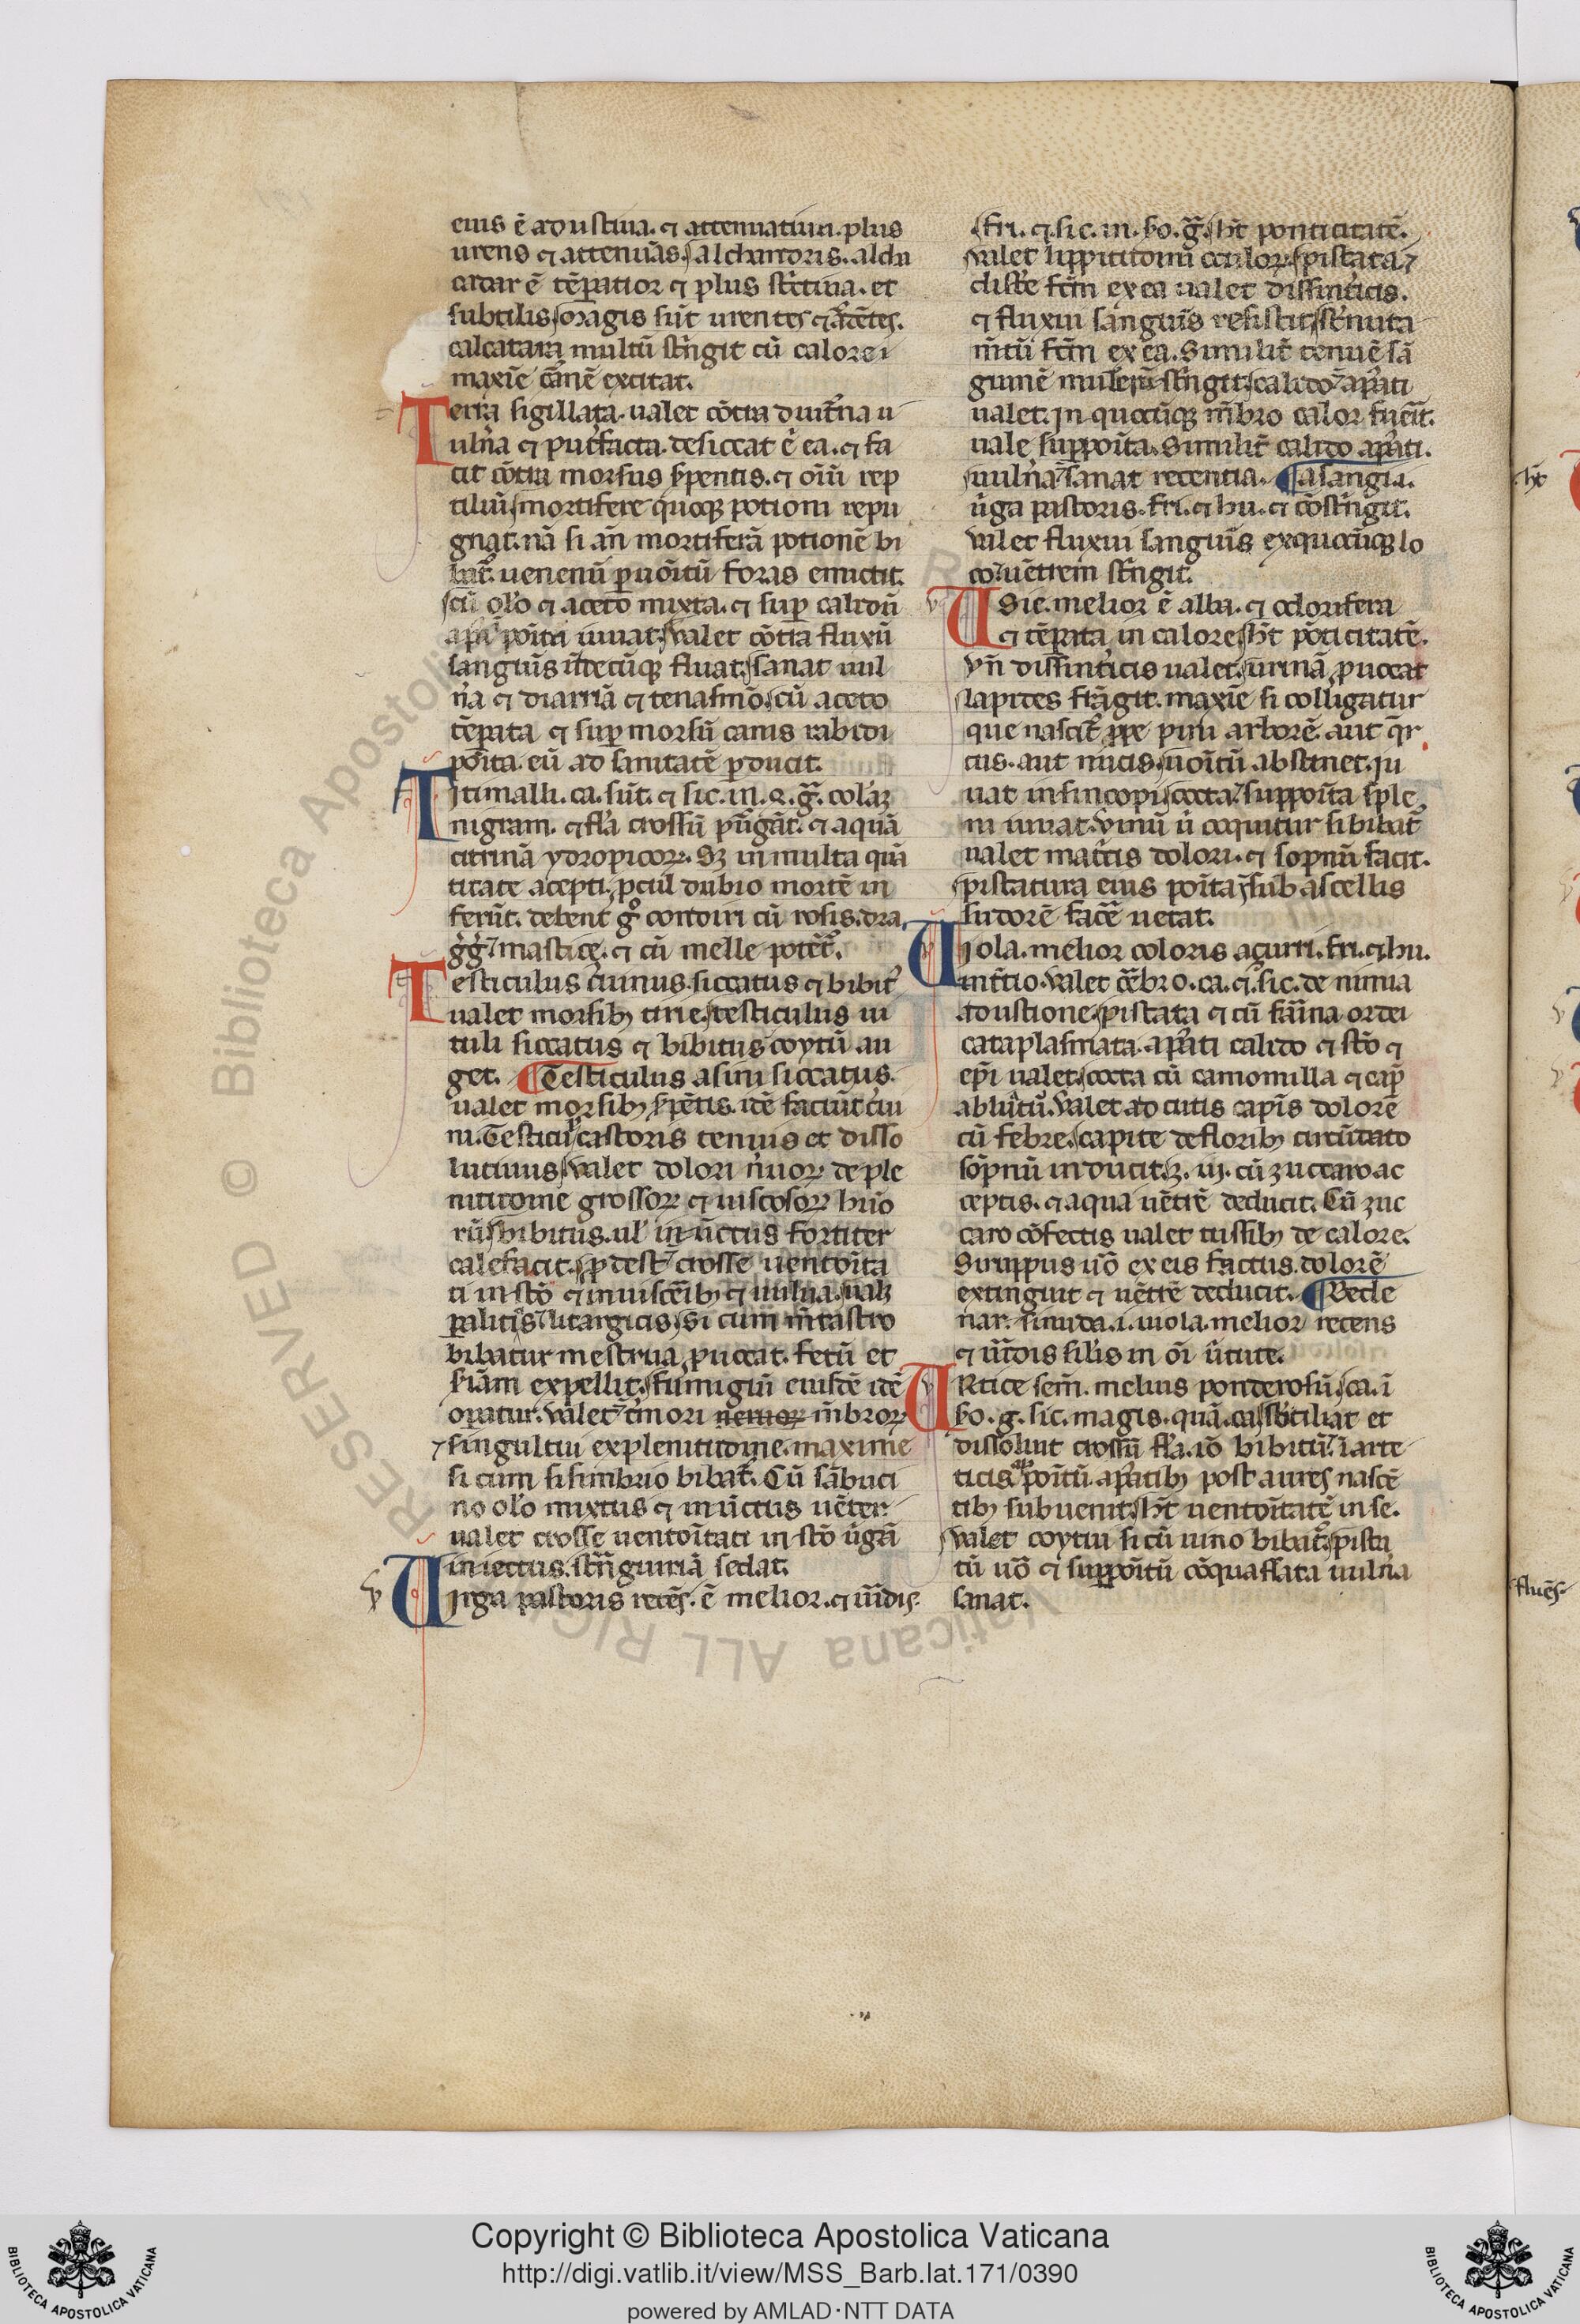 eius ē adustiua. ⁊ attenuatiua. plus
urens ⁊ attenuās. alchantoris. alchi
ardar ē tēperatior ⁊ plus stictiua. et
subtilis. oragis sūt urentes ⁊
calcatarā multū stringit cū calore ⁊
maxīe cānē excitat.
Terra sigillata. ualet cōtra diuturna u
ulnera ⁊ putrefacta. desiccat ē ea. ⁊ fa
cit cōtra morsus serpentis. ⁊ oīū rep
tiliū. mortifere quoqꝫ potioni repu
gnat. nā si ān mortiferā potionē bi
bat. uenenū per uoītū foras emictit.
cū oleo ⁊ aceto mixta. ⁊ sup calidū
poīta iuuat. ualet cōtra fluxū
sanguīs undecūqꝫ fluat. sanat uul
nera ⁊ diarriā ⁊ tenasmō. cū aceto
tēperata ⁊ sup morsū canis rabidi
poīta. eū ad sanitatē perducit.
Titimalli. ca. sūt. ⁊ sic. in. 4. gͣ. colāꝫ
nigram. ⁊ fla crossū purgāt. ⁊ aquā
citrinā ydropicoꝝ. Sꝫ in multa quā
titate acepti. procul dubio mortē in
ferūt. debent gͦ contoiri cū rosis. dra
gg ⁊ mastice. ⁊ cū melle
Testiculus ceruinus. siccatus ⁊ bibitꝰ
ualet morsibꝫ tirie. testiculus ui
tuli siccatus ⁊ bibitus coytū au
get. ¶ Testiculus asini siccatus.
ualet morsibꝫ serpētis. idē faciūt cerui
ni. Testiculꝰ castoris tenuis et disso
lutiuus. ualet dolori neruoꝝ de ple
nitudine grossoꝝ ⁊ uiscosoꝝ humo
rū. bibitus. uľ in ūctus fortiter
calefacit. prodest crosse uentoīta
ti in stō ⁊ in uiscēribꝫ ⁊ uulua. ualꝫ
paliticis ⁊ litargicis. si cum mētastro
bibatur mestrua prouocat. fetū et
siām expellit. fumigiū eiusdē idē
operatur. ualet tremori neruoꝝ mēbroꝝ
⁊ singultui ex plenitudine. maxime
si cum sisimbrio bibat. Cū sābuci
no oleo mixtus ⁊ in ūctus uēter
ualet crosse uentoītati in stō uirgā
iniectus. strāguiriā sedat.
Uirga pastoris recēs. ē melior. ⁊ uiridis.
fri. ⁊. sic. in. bo. gͣ. hēt ponticitatē.
ualet lippitudinū oculoꝝ. pistata ⁊
clistere fcm ex ea ualet dissintericis.
⁊ fluxui sanguīs resistit. sternuta
mētū fcm ex ea. Similiter tenuē sā
guinē mulierū stringit. calido ⁊ apati
ualet. in quocūqꝫ mēbro calor fuerit.
uale suppoīta. Similit calido apati.
uulnera ⁊ sanat recentia. ¶ asangia.
uirga pastoris. fri. ⁊ hu. ⁊ cōstringit.
ualet fluxui sanguīs ex quocūqꝫ lo
co ⁊ uētrem stringit.
USie. melior ē alba. ⁊ odorifera
⁊ tēperata in calore. hēt pōticitatē.
vn̄ dissintericis ualet. urinā prouocat
lapides frāgit. maxīe si colligatur
que nascit prope pinū arborē. aut quer
cus. aut nucis. uoītū abstinet. iu
uat in sincopi. cocta ⁊ suppoīta sple
ni iuuat. uinū ū coquitur si bibat
ualet matricis dolori. ⁊ sopnū facit.
pistatura eius poīta sub ascellis
sudorē facere uetat.
Uiola. melior coloris açurri. fri. ⁊ hu.
in tertio. ualet cerebro. ca. ⁊. sic. de nimia
adustione. pistata ⁊ cū farina ordei
cataplasmata. apati calido ⁊ stō ⁊
epī ualet. cocta cū camomilla ⁊ capī
ablutū. ualet ad cutis capīs dolorē
cū febre. capite de floribꝫ circūdato
sōpnū inducit. ʒ. iij. cū zuccaro ac
ceptis. ⁊ aqua uētrē deducit. Cū zuc
caro cōfectis ualet tussibꝫ de calore.
Siruppus uō ex eis factus. dolorē
extinguit ⁊ uētrē deducit. ¶ Bede
nar. sinida. i. uiola. melior recens
⁊ uiridis silīs in oī uirtute.
URtice sem̄. melius ponderosū. ca. ī
bo. g. sic. magis. quā. ca. sbtiliat et
dissoluit crossū fla. iō bibitū. ī arte
ticis poītū. apatibꝫ post aures nascē
tibꝫ subuenit. hēt uentoītatē in se.
ualet coytui si cū uino bibat. pista
tū uō ⁊ suppoītū cōquassata uulnera
sanat.
fluēs
RESERVED © Biblioteca Apostolica Vaticana ALL RIGHTS
Copyright © Biblioteca Apostolica Vaticana
http://digi.vatlib.it/view/MSS_Barb.lat.171/0390
powered by AMLAD·NTT DATA
BIBLIOTECA APOSTOLICA VATICANA
BIBLIOTECA APOSTOLICA VATICANA